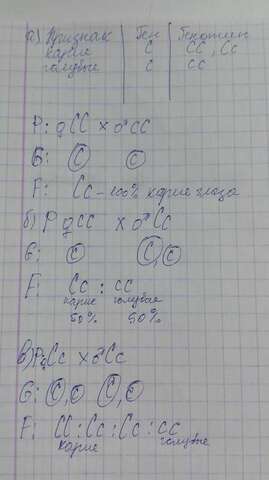 а) Признак Ген Генотип
карие С СС, Сс
голубые с сс
Р: ♀СС × ♂сс
G: С с
F: Сс - 100% карие глаза
б) Р ♀сс × ♂Сс
G: с С, с
F: Сс : сс
карие голубые
50% 50%
в) Р: ♀Сс × ♂Сс
G: С, с С, с
F: СС : Сс : Сс : сс
карие голубые